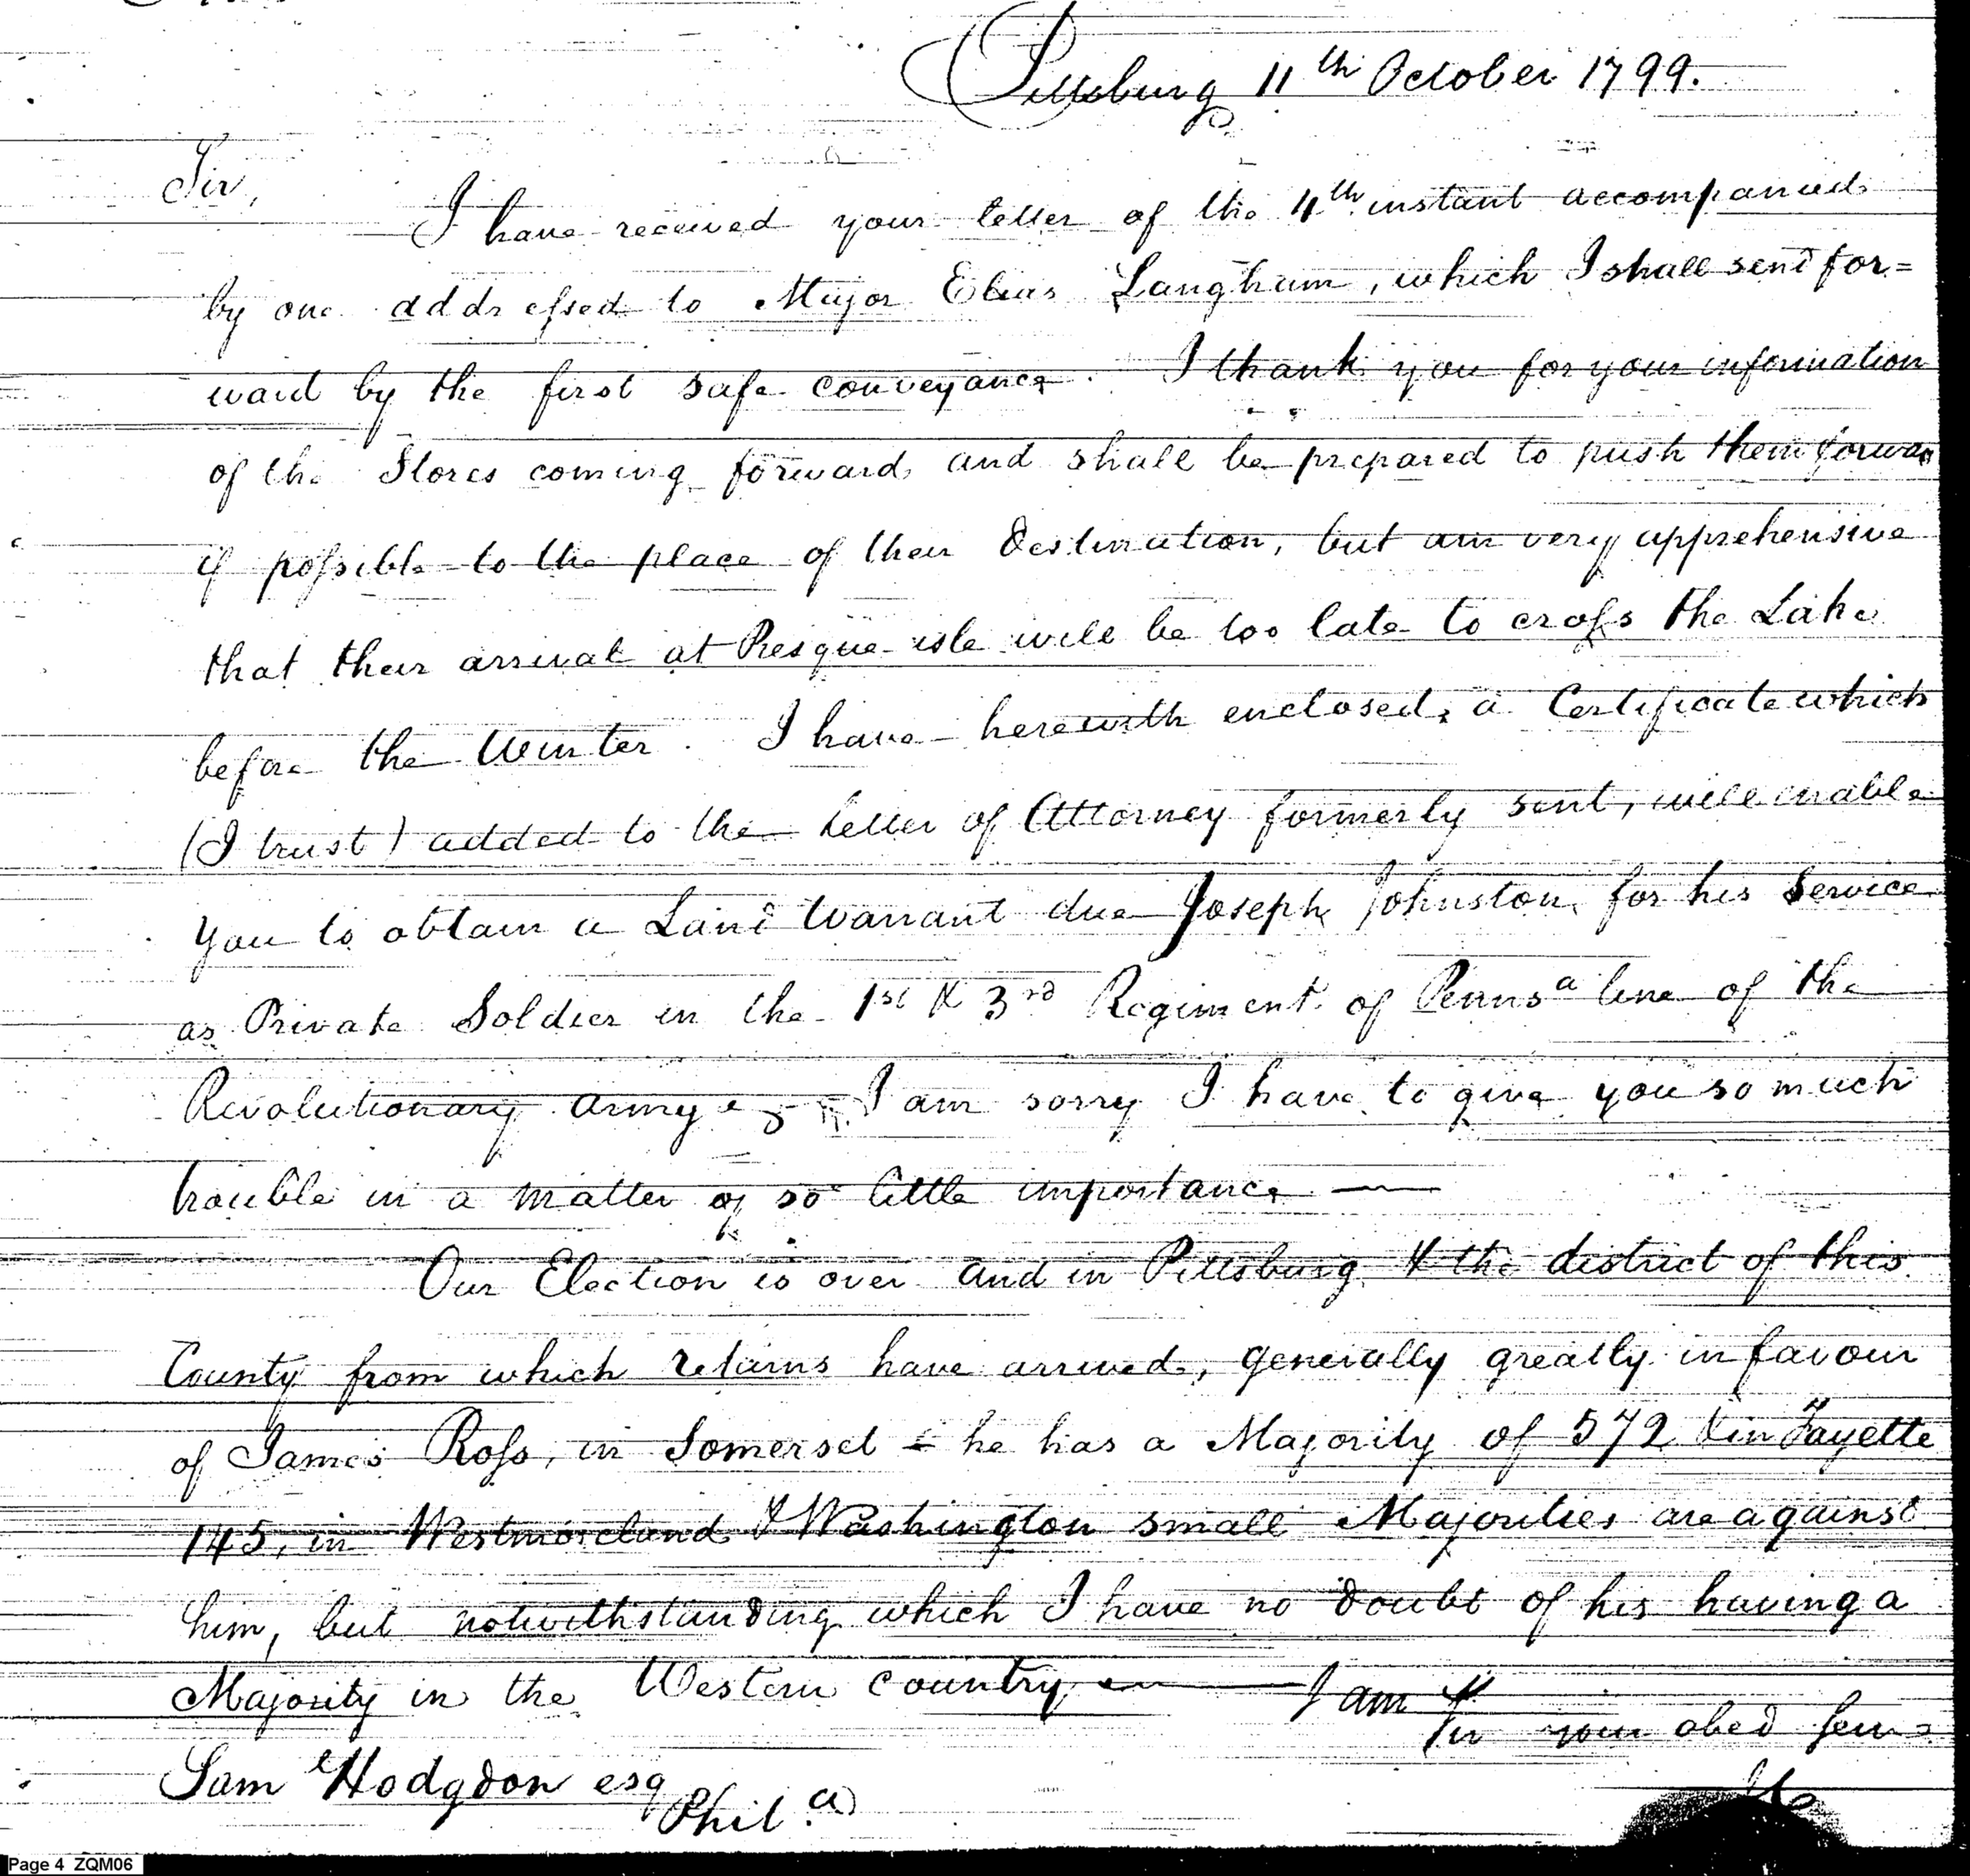 Pittsburg 11th October 1799.
Sir,
I have received your letter of the 4th instant accompanied
by one addressed to Major Elias Langham, which I shall send for=
ward by the first safe conveyance. I thank you for your information
of the Stores coming forward and shall be prepared to push them forwar
if possible to the place of their destination, but am very apprehensive
that their arrival at Presque-isle will be too late to cross the Lake
before the Winter. I have herewith enclosed, a Certificate which
(I trust) added to the letter of Attorney formerly sent, will enable
you to obtain a Land Warrant due Joseph Johnston for his Service
as Private Soldier in the 1st & 3rd Regiment of Pennsa line of the
Revolutionary Army I am sorry I have to give you so much
trouble in a matter of so little importance —
Our Election is over and in Pittsburg & the district of this
County from which returns have arrived, generally greatly in favour
of James Ross, in Somerset he has a Majority of 572 & in Fayette
145, in Westmoreland & Washington small Majorities are against
him, but notwithstanding which I have no doubt of his having a
Majority in the Western Country — I am
Sir your obed Serv
Saml Hodgdon esq
Phila
Page 4 ZQM06